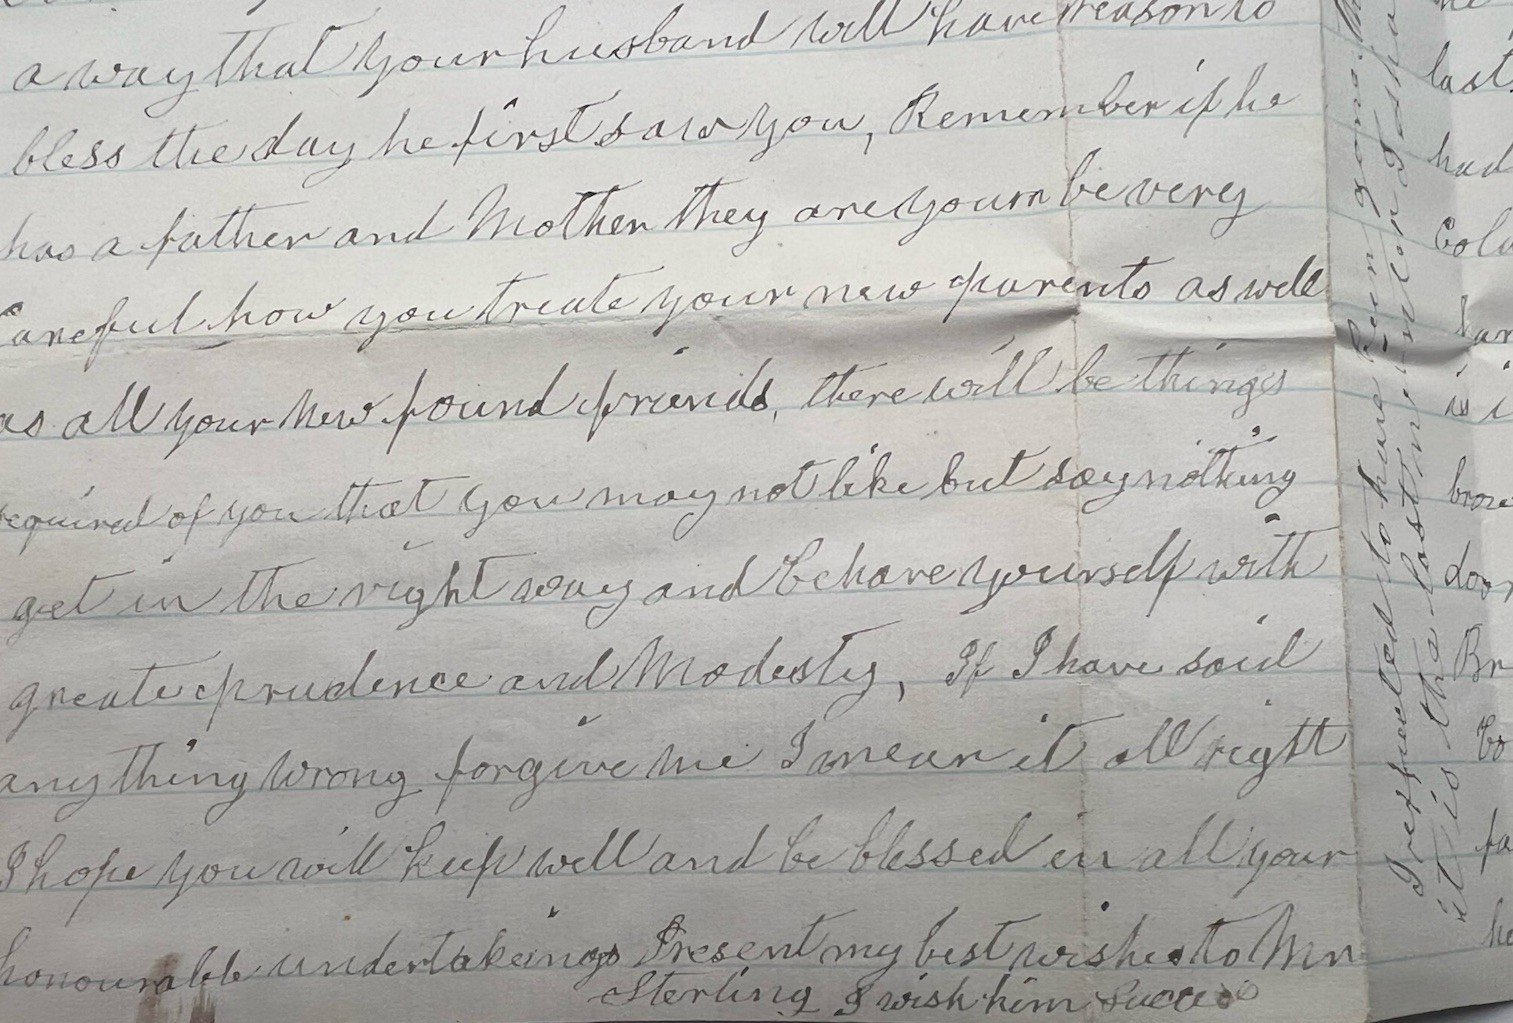 a way that your husband will have reason to
bless the day he first saw you, Remember if he
has a father and Mother they are yourn be very
Careful how you treate your new parents as well
as all your new found friends, there will be things
required of you that you may not like but say nothing
get in the right way and behave yourself with
greate prudence and Modesty, If I have said
anything wrong forgive me I mean it all right
I hope you will keep well and be blessed in all your
honourable undertakeings Present my best wishes to Mr
Sterling I wish him Success
I expected to have been gone
it is the last
last
had
is i